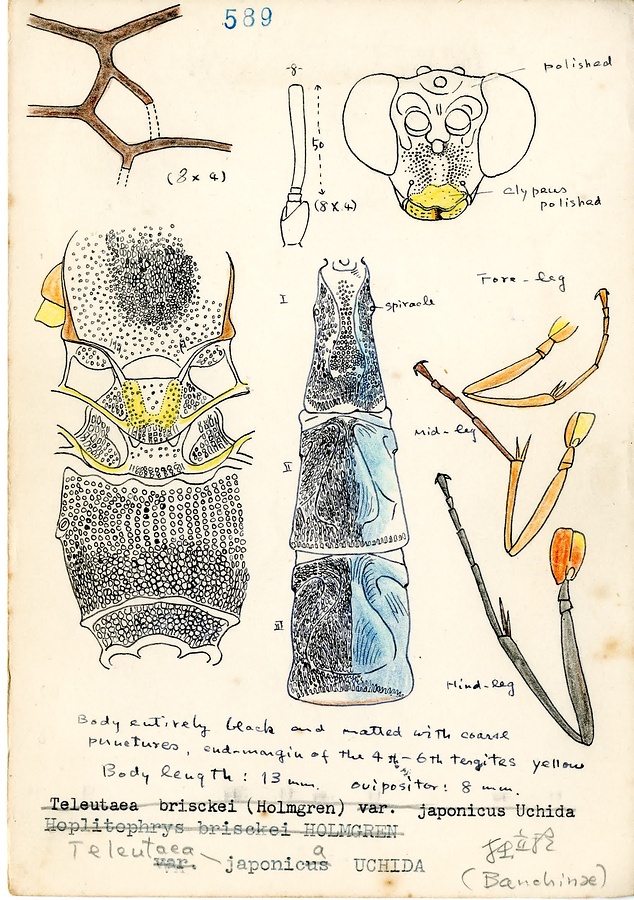 589
polished
8
50
(8 x 4)
(8 x 4)
clypeus
polished
I
spiracle
Fore-leg
Mid-leg
II
III
Hind-leg
Body entirely black and matted with coarse
punctures, end-margin of the 4th-6th tergites yellow
Body length: 13 mm. ovipositor: 8 mm.
Teleutaea brisckei (Holmgren) var. japonicus Uchida
Hoplitophrys brisckei HOLMGREN
Teleutaea
var. japonicus a UCHIDA
(Banchinae)